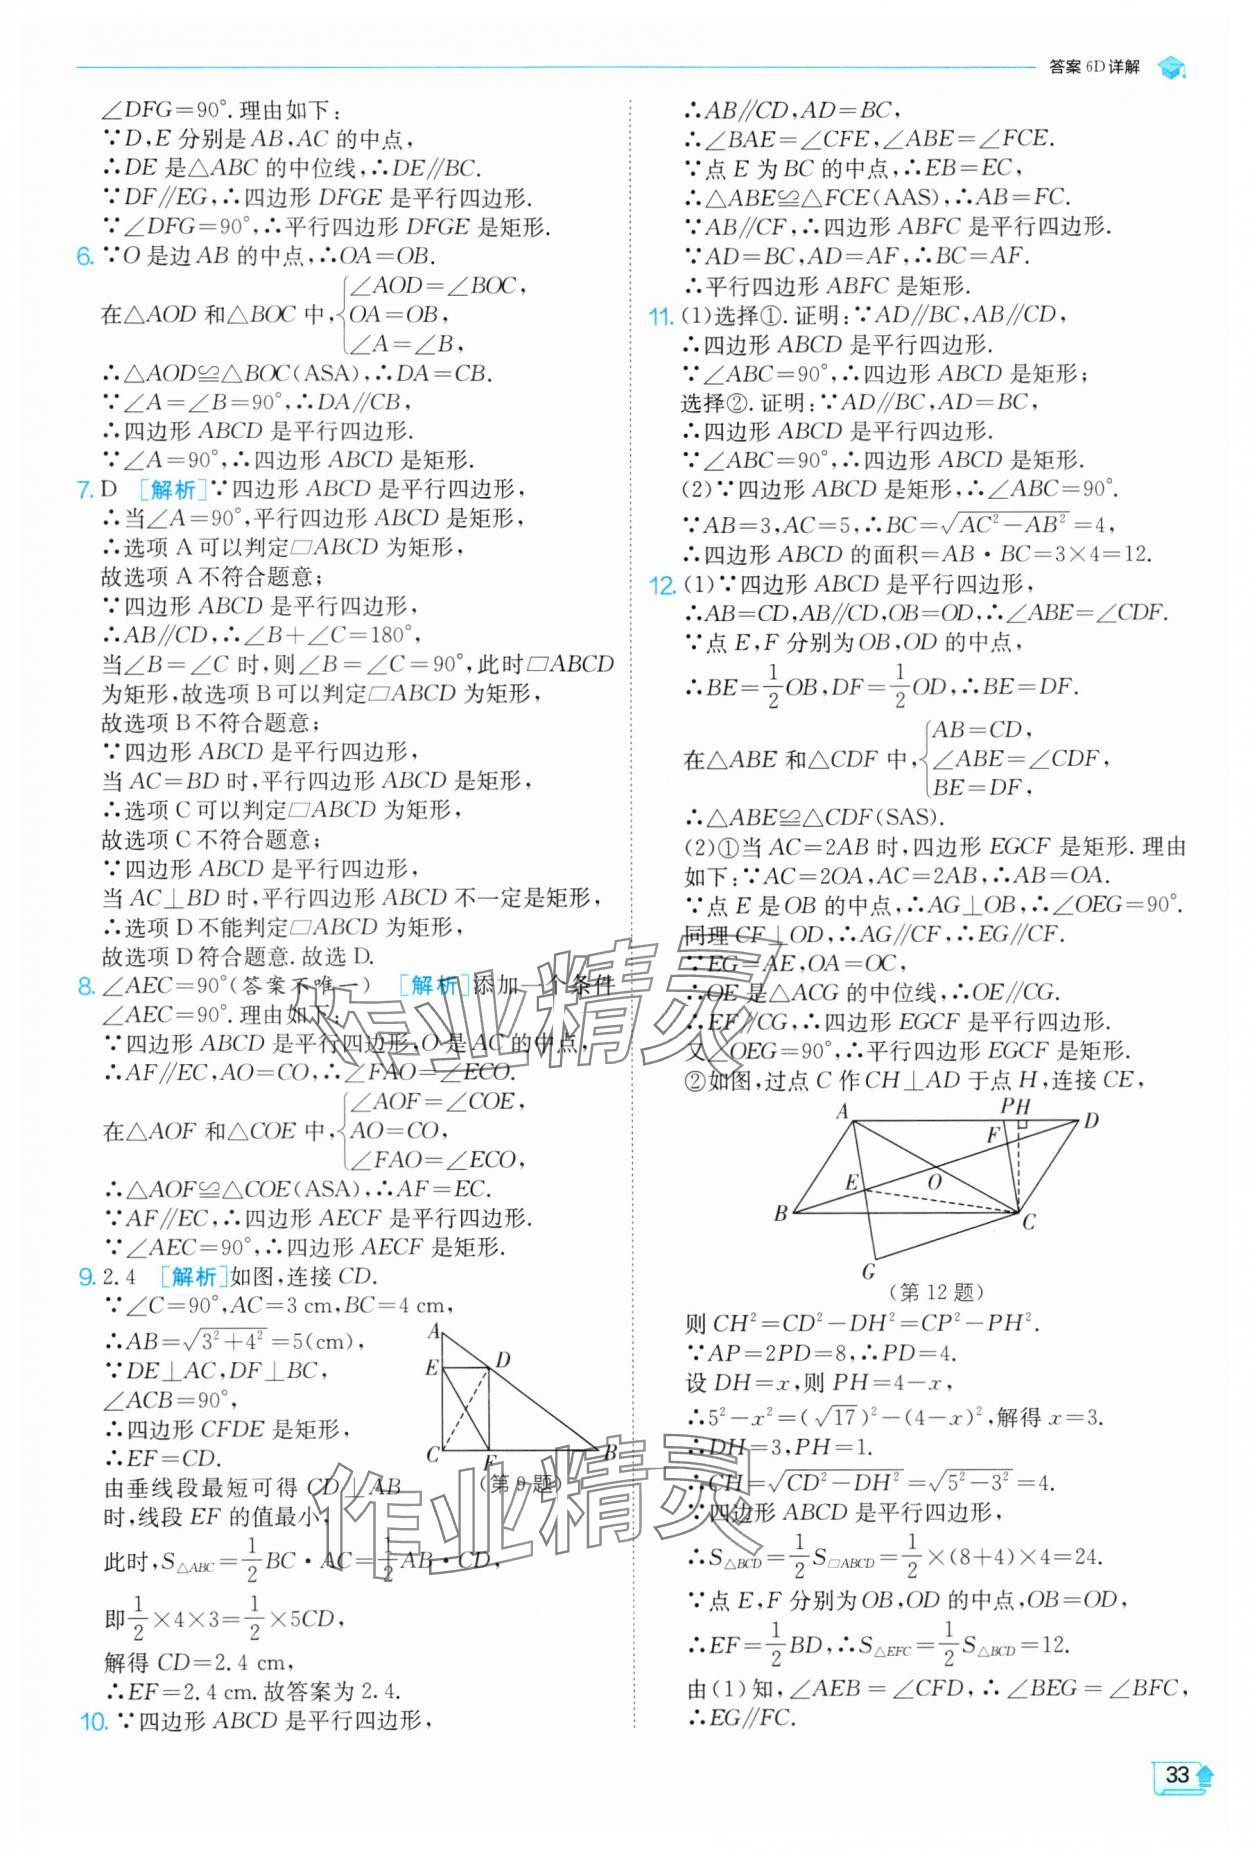 答案 6D 详解
∠DFG=90°.理由如下:
∵D,E 分别是 AB,AC 的中点,
∴DE 是△ABC 的中位线,∴DE∥BC.
∵DF∥EG,∴四边形 DFGE 是平行四边形.
∵∠DFG=90°,∴平行四边形 DFGE 是矩形.
6. ∵O 是边 AB 的中点,∴OA=OB.
在△AOD 和△BOC 中,{∠AOD=∠BOC,
OA=OB,
∠A=∠B,
∴△AOD≌△BOC(ASA),∴DA=CB.
∵∠A=∠B=90°,∴DA∥CB,
∴四边形 ABCD 是平行四边形.
∵∠A=90°,∴四边形 ABCD 是矩形.
7. D [解析]∵四边形 ABCD 是平行四边形,
∴当∠A=90°,平行四边形 ABCD 是矩形,
∴选项 A 可以判定□ABCD 为矩形,
故选项 A 不符合题意;
∵四边形 ABCD 是平行四边形,
∴AB∥CD,∴∠B+∠C=180°,
当∠B=∠C 时,则∠B=∠C=90°,此时□ABCD
为矩形,故选项 B 可以判定□ABCD 为矩形,
故选项 B 不符合题意;
∵四边形 ABCD 是平行四边形,
当 AC=BD 时,平行四边形 ABCD 是矩形,
∴选项 C 可以判定□ABCD 为矩形,
故选项 C 不符合题意;
∵四边形 ABCD 是平行四边形,
当 AC⊥BD 时,平行四边形 ABCD 不一定是矩形,
∴选项 D 不能判定□ABCD 为矩形,
故选项 D 符合题意.故选 D.
8. ∠AEC=90°(答案不唯一) [解析]添加一个条件
∠AEC=90°.理由如下:
∵四边形 ABCD 是平行四边形,O 是 AC 的中点,
∴AF∥EC,AO=CO,∴∠FAO=∠ECO.
在△AOF 和△COE 中,{∠AOF=∠COE,
AO=CO,
∠FAO=∠ECO,
∴△AOF≌△COE(ASA),∴AF=EC.
∵AF∥EC,∴四边形 AECF 是平行四边形.
∵∠AEC=90°,∴四边形 AECF 是矩形.
9. 2.4 [解析]如图,连接 CD.
∵∠C=90°,AC=3 cm,BC=4 cm,
∴AB=√(3²+4²)=5(cm),
∵DE⊥AC,DF⊥BC,
∠ACB=90°,
∴四边形 CFDE 是矩形,
∴EF=CD.
A
E D
C F B
(第 9 题)
由垂线段最短可得 CD⊥AB
时,线段 EF 的值最小,
此时,S△ABC=1/2 BC·AC=1/2 AB·CD,
即1/2×4×3=1/2×5CD,
解得 CD=2.4 cm,
∴EF=2.4 cm.故答案为 2.4.
10. ∵四边形 ABCD 是平行四边形,
∴AB∥CD,AD=BC,
∴∠BAE=∠CFE,∠ABE=∠FCE.
∵点 E 为 BC 的中点,∴EB=EC,
∴△ABE≌△FCE(AAS),∴AB=FC.
∵AB∥CF,∴四边形 ABFC 是平行四边形.
∵AD=BC,AD=AF,∴BC=AF.
∴平行四边形 ABFC 是矩形.
11. (1)选择①.证明:∵AD∥BC,AB∥CD,
∴四边形 ABCD 是平行四边形.
∵∠ABC=90°,∴四边形 ABCD 是矩形;
选择②.证明:∵AD∥BC,AD=BC,
∴四边形 ABCD 是平行四边形.
∵∠ABC=90°,∴四边形 ABCD 是矩形.
(2)∵四边形 ABCD 是矩形,∴∠ABC=90°.
∵AB=3,AC=5,∴BC=√(AC²-AB²)=4,
∴四边形 ABCD 的面积=AB·BC=3×4=12.
12. (1)∵四边形 ABCD 是平行四边形,
∴AB=CD,AB∥CD,OB=OD,∴∠ABE=∠CDF.
∵点 E,F 分别为 OB,OD 的中点,
∴BE=1/2 OB,DF=1/2 OD,∴BE=DF.
在△ABE 和△CDF 中,{AB=CD,
∠ABE=∠CDF,
BE=DF,
∴△ABE≌△CDF(SAS).
(2)①当 AC=2AB 时,四边形 EGCF 是矩形.理由
如下:∵AC=2OA,AC=2AB,∴AB=OA.
∵点 E 是 OB 的中点,∴AG⊥OB,∴∠OEG=90°.
同理 CF⊥OD,∴AG∥CF,∴EG∥CF.
∵EG=AE,OA=OC,
∴OE 是△ACG 的中位线,∴OE∥CG.
∴EF∥CG,∴四边形 EGCF 是平行四边形.
又∠OEG=90°,∴平行四边形 EGCF 是矩形.
②如图,过点 C 作 CH⊥AD 于点 H,连接 CE,
A PH D
F
E O
B C
G
(第 12 题)
则 CH²=CD²-DH²=CP²-PH².
∵AP=2PD=8,∴PD=4.
设 DH=x,则 PH=4-x,
∴5²-x²=(√17)²-(4-x)²,解得 x=3.
∴DH=3,PH=1.
∴CH=√(CD²-DH²)=√(5²-3²)=4.
∵四边形 ABCD 是平行四边形,
∴S△BCD=1/2 S□ABCD=1/2×(8+4)×4=24.
∵点 E,F 分别为 OB,OD 的中点,OB=OD,
∴EF=1/2 BD,∴S△EFC=1/2 S△BCD=12.
由(1)知,∠AEB=∠CFD,∴∠BEG=∠BFC,
∴EG∥FC.
33
作业精灵
作业精灵